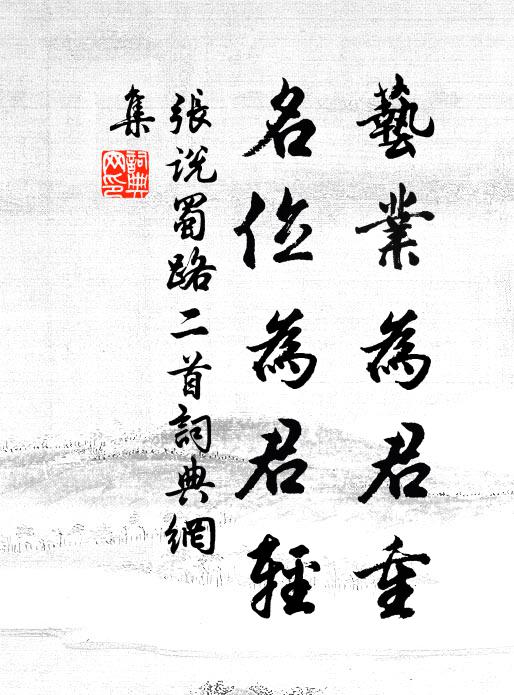 藝業為君重
名位為君輕
張說蜀路二首詞典網
集
詞典
网印